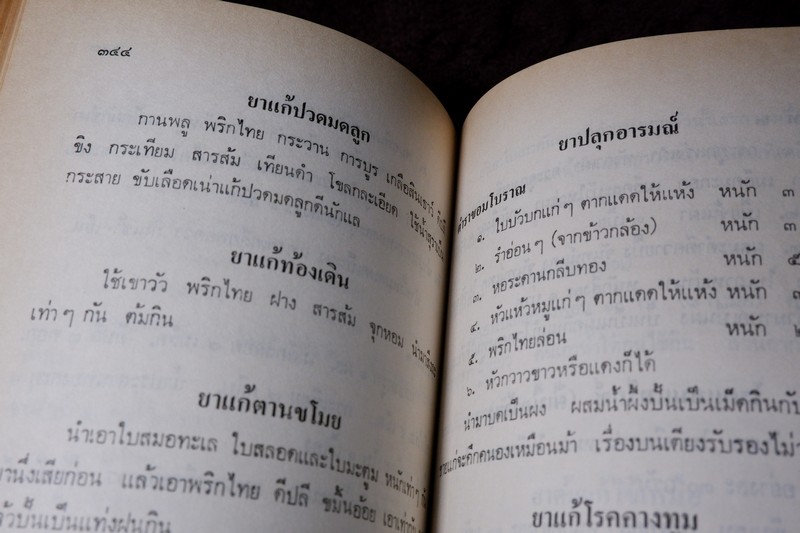 ๓๔๔
ยาแก้ปวดมดลูก
กานพลู พริกไทย กระวาน การบูร เกลือสินเธาว์
ขิง กระเทียม สารส้ม เทียนดำ โขลกละเอียด ใช้น้ำ
กระสาย ขับเลือดเน่าแก้ปวดมดลูกดีนักแล
ยาแก้ท้องเดิน
ใช้เขาวัว พริกไทย ฝาง สารส้ม จุกหอม
เท่าๆ กัน ต้มกิน
ยาแก้ตานขโมย
นำเอาใบสมอทะเล ใบสลอดและใบมะตูม หนักเท่าๆ
านึ่งเสียก่อน แล้วเอาพริกไทย ดีปลี ขมิ้นอ้อย เอาเท่า
วปั้นเป็นแท่งฝนกิน
ยาปลุกอารมณ์
ตำราขอมโบราณ
๑. ใบบัวบกแก่ๆ ตากแดดให้แห้ง หนัก ๓
๒. รำอ่อนๆ (จากข้าวกล้อง) หนัก ๓
๓. หอระดานกลีบทอง หนัก ๕
๔. หัวแห้วหมูแก่ๆ ตากแดดให้แห้ง หนัก
๕. พริกไทยล่อน หนัก
๖. หัวกวาวขาวหรือแดงก็ได้
นำมาบดเป็นผง ผสมน้ำผึ้งปั้นเป็นเม็ดกินกับ
ชายแก่จะคึกคนองเหมือนม้า เรื่องบนเตียงรับรองไม่
ยาแก้โรคคางทูม